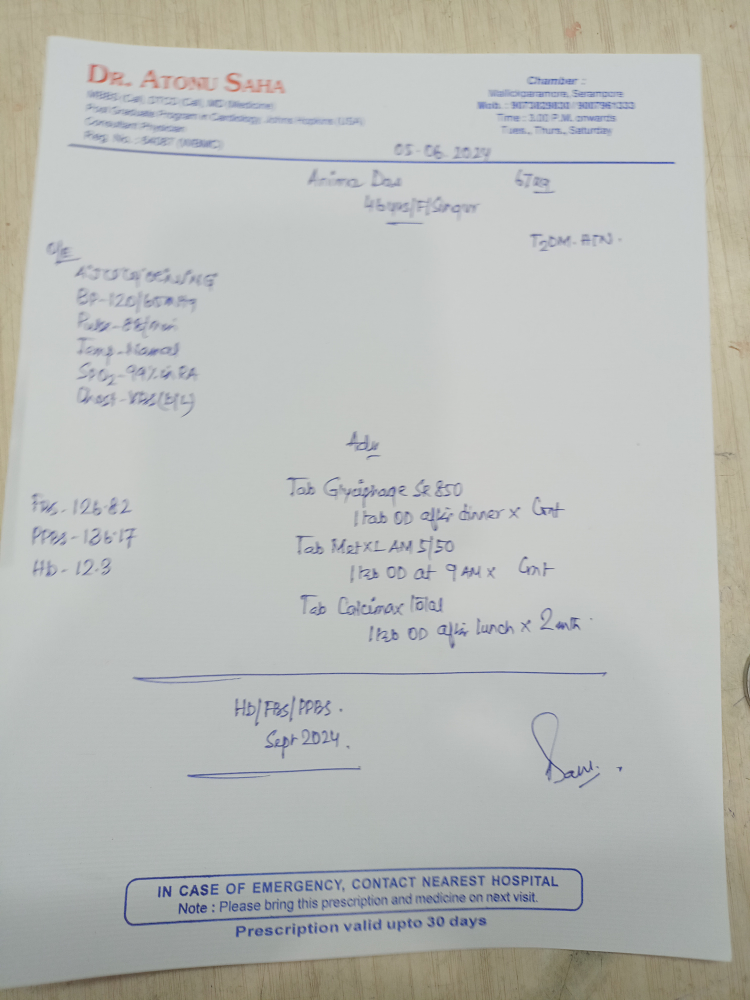 DR. ATONU SAHA
MBBS (Cal), DTCD (Cal), MD (Medicine)
Post Graduate Program in Cardiology, Johns Hopkins (USA)
Consultant Physician
Reg. No. : (WBMC)
Chamber :
Mallickparamore, Serampore
Mob. :
Time : 3.00 P.M. onwards
Tues., Thurs., Saturday
05-06.2024
Anima Das
46yrs/F/Singur
T2DM-HTN.
O/E
BP-120/65mmHg
Pulse-88/min
Temp-Normal
SpO2-99% in RA
Chest-VBS(B/L)
Adv
Tab Glyciphage SR 850
1tab OD after dinner x Cont
Tab MetXL AM 5/50
1tab OD at 9AM x Cont
Tab Calcimax Total
1tab OD after lunch x 2mth.
FBS-126.82
PPBS-136.17
Hb-12.3
Hb/FBS/PPBS.
Sept 2024.
IN CASE OF EMERGENCY, CONTACT NEAREST HOSPITAL
Note : Please bring this prescription and medicine on next visit.
Prescription valid upto 30 days